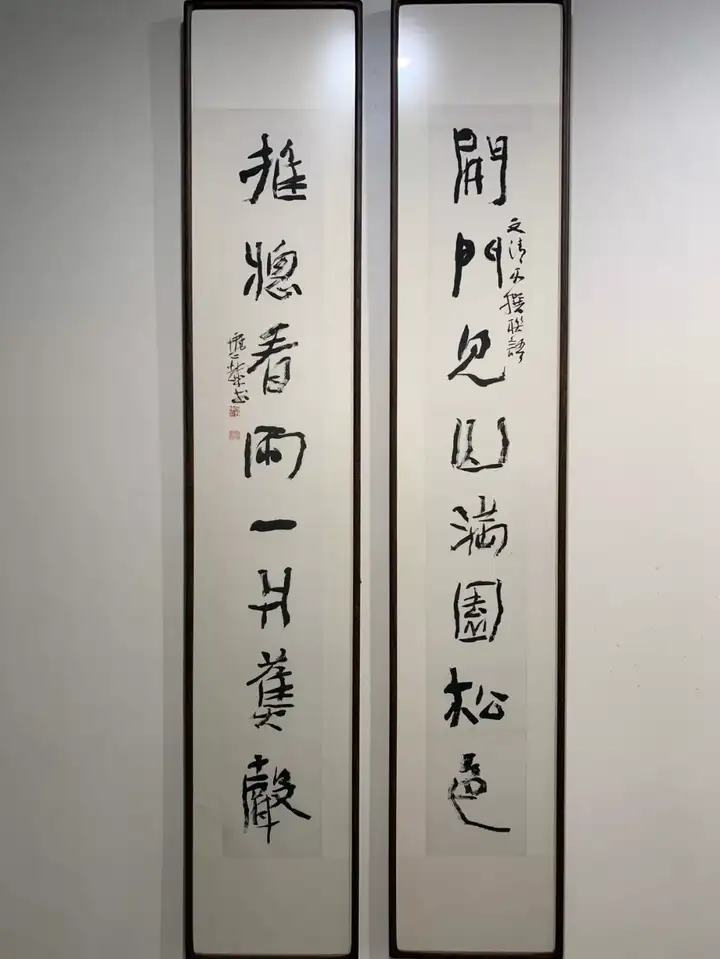 開門見山滿園松色
文清撰聯語
推牕看雨一片蕉聲